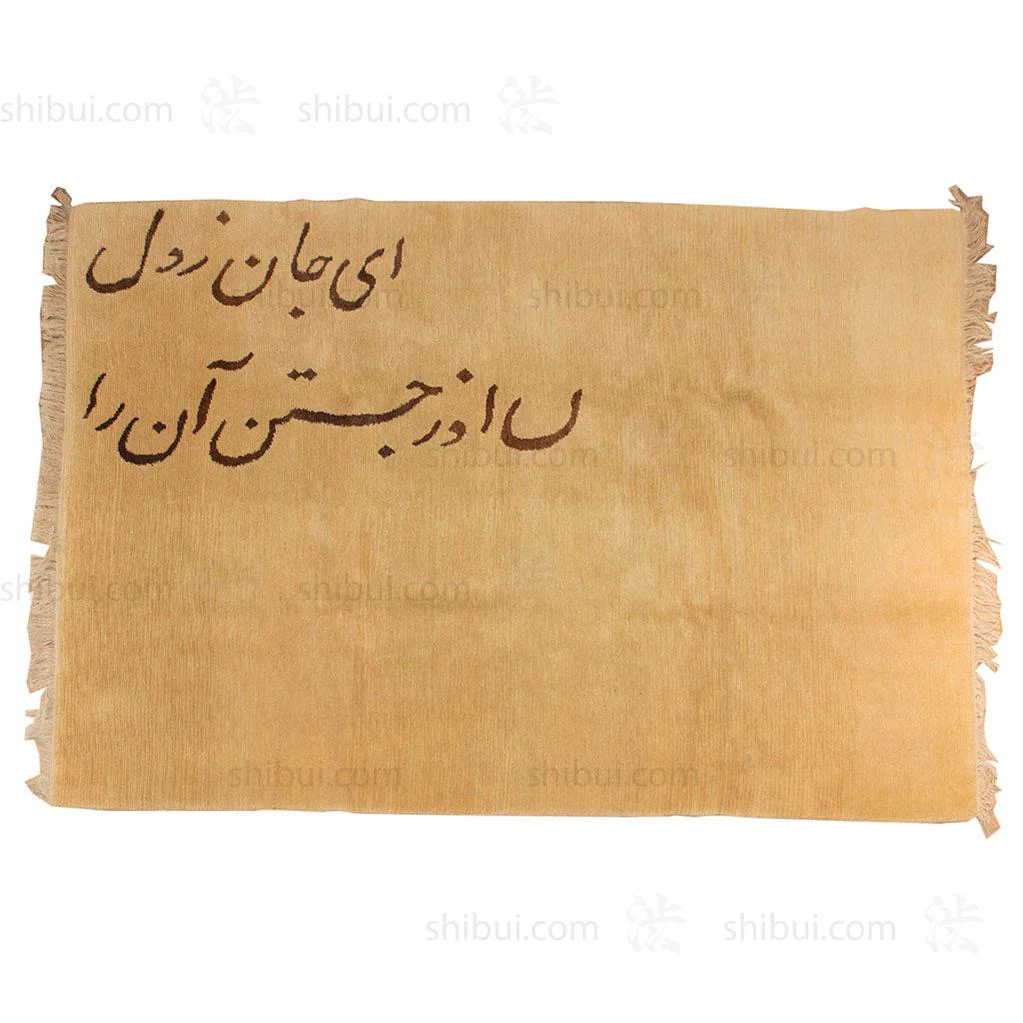 shibui.com shibui.com
ای جان ز دل
shibui.com
جستن آن را
shibui.com shibui.com
shibui.com shibui.com
shibui.com shibui.com
shibui.com shibui.com